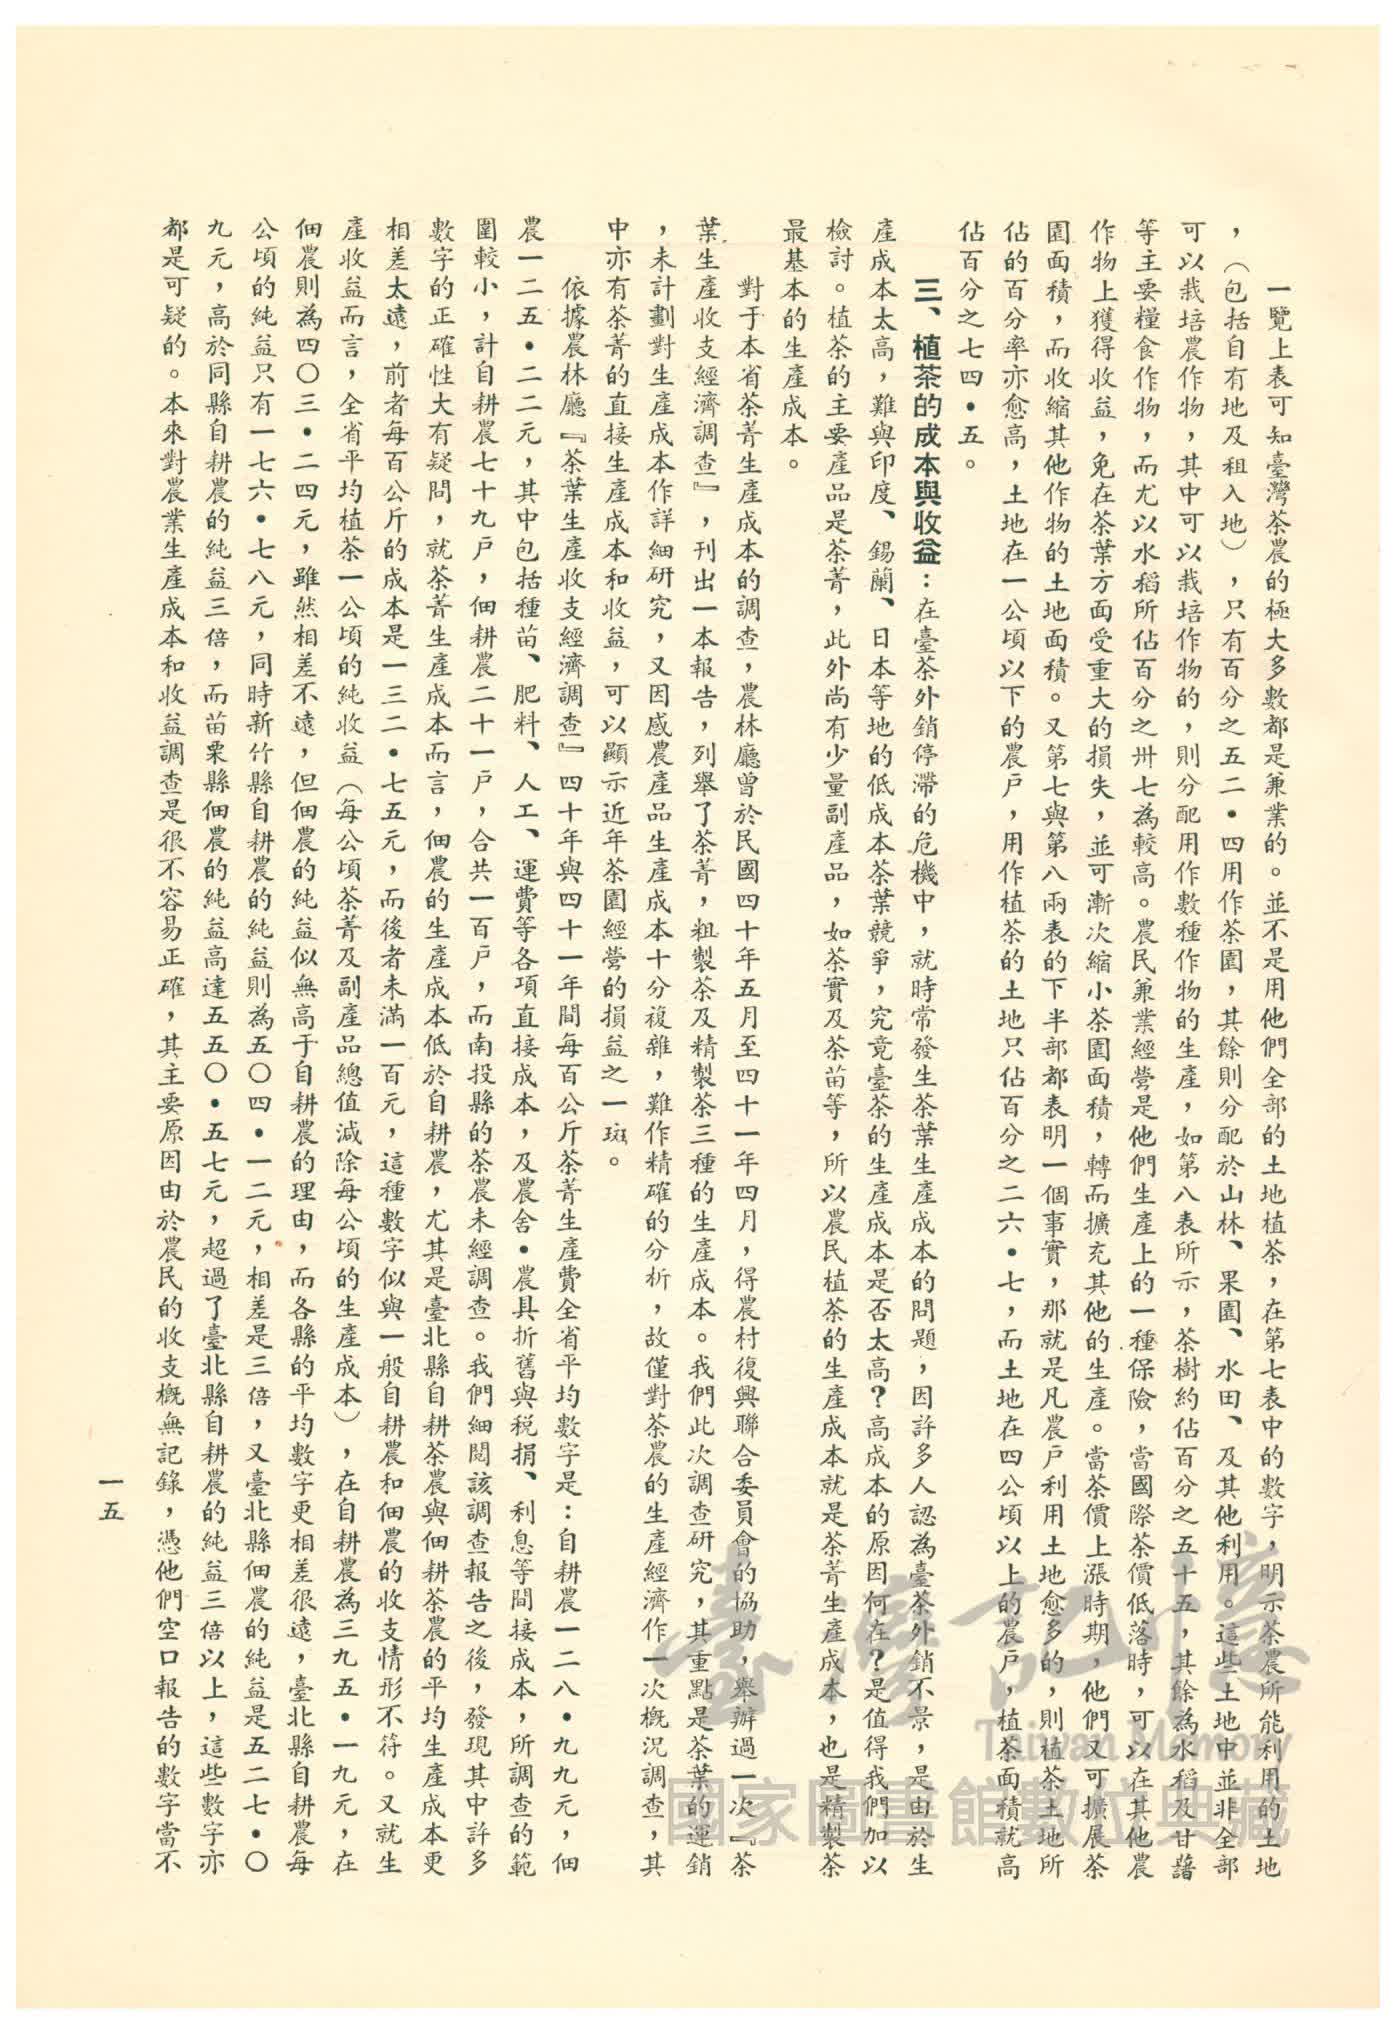 一覽上表可知臺灣茶農的極大多數都是兼業的。並不是用他們全部的土地植茶，在第七表中的數字，明示茶農所能利用的土地
，（包括自有地及租入地），只有百分之五二•四用作茶園，其餘則分配於山林、果園、水田、及其他利用。這些土地中並非全部
可以栽培農作物，其中可以栽培作物的，則分配用作數種作物的生產，如第八表所示，茶樹約佔百分之五十五，其餘為水稻及甘藷
等主要糧食作物，而尤以水稻所佔百分之卅七為較高。農民兼業經營是他們生產上的一種保險，當國際茶價低落時，可以在其他農
作物上獲得收益，免在茶葉方面受重大的損失，並可漸次縮小茶園面積，轉而擴充其他的生產。當茶價上漲時期，他們又可擴展茶
園面積，而收縮其他作物的土地面積。又第七與第八兩表的下半部都表明一個事實，那就是凡農戶利用土地愈多的，則植茶土地所
佔的百分率亦愈高，土地在一公頃以下的農戶，用作植茶的土地只佔百分之二六•七，而土地在四公頃以上的農戶，植茶面積就高
佔百分之七四•五。
三、植茶的成本與收益：在臺茶外銷停滯的危機中，就時常發生茶葉生產成本的問題，因許多人認為臺茶外銷不景，是由於生
產成本太高，難與印度、錫蘭、日本等地的低成本茶葉競爭，究竟臺茶的生產成本是否太高？高成本的原因何在？是值得我們加以
檢討。植茶的主要產品是茶菁，此外尚有少量副產品，如茶實及茶苗等，所以農民植茶的生產成本就是茶菁生產成本，也是精製茶
最基本的生產成本。
對于本省茶菁生產成本的調查，農林廳曾於民國四十年五月至四十一年四月，得農村復興聯合委員會的協助，舉辦過一次『茶
葉生產收支經濟調查』，刊出一本報告，列舉了茶菁，粗製茶及精製茶三種的生產成本。我們此次調查研究，其重點是茶葉的運銷
，未計劃對生產成本作詳細研究，又因感農產品生產成本十分複雜，難作精確的分析，故僅對茶農的生產經濟作一次概況調查，其
中亦有茶菁的直接生產成本和收益，可以顯示近年茶園經營的損益之一斑。
依據農林廳『茶葉生產收支經濟調查』四十年與四十一年間每百公斤茶菁生產費全省平均數字是：自耕農一二八•九九元，佃
農一二五•二二元，其中包括種苗、肥料、人工、運費等各項直接成本，及農舍•農具折舊與稅捐、利息等間接成本，所調查的範
圍較小，計自耕農七十九戶，佃耕農二十一戶，合共一百戶，而南投縣的茶農未經調查。我們細閱該調查報告之後，發現其中許多
數字的正確性大有疑問，就茶菁生產成本而言，佃農的生產成本低於自耕農，尤其是臺北縣自耕茶農與佃耕茶農的平均生產成本更
相差太遠，前者每百公斤的成本是一三二•七五元，而後者未滿一百元，這種數字似與一般自耕農和佃農的收支情形不符。又就生
產收益而言，全省平均植茶一公頃的純收益（每公頃茶菁及副產品總值減除每公頃的生產成本），在自耕農為三九五•一九元，在
佃農則為四〇三•二四元，雖然相差不遠，但佃農的純益似無高于自耕農的理由，而各縣的平均數字更相差很遠，臺北縣自耕農每
公頃的純益只有一七六•七八元，同時新竹縣自耕農的純益則為五〇四•一二元，相差是三倍，又臺北縣佃農的純益是五二七•〇
九元，高於同縣自耕農的純益三倍，而苗栗縣佃農的純益高達五五〇•五七元，超過了臺北縣自耕農的純益三倍以上，這些數字亦
都是可疑的。本來對農業生產成本和收益調查是很不容易正確，其主要原因由於農民的收支概無記錄，憑他們空口報告的數字當不
一五
臺灣記憶
Taiwan Memory
國家圖書館數位典藏